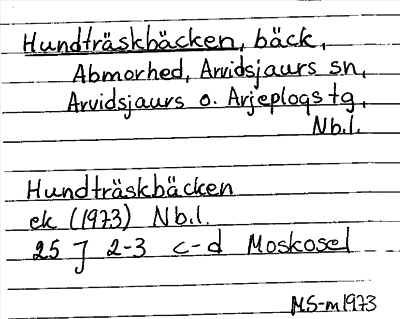 Hundträskbäcken, bäck,
Abmorhed, Arvidsjaurs sn,
Arvidsjaurs o. Arjeplogs tg,
Nb.l.
Hundträskbäcken
ek (1973) Nb.l.
25 J 2-3 c-d Moskosel
MS-m 1973